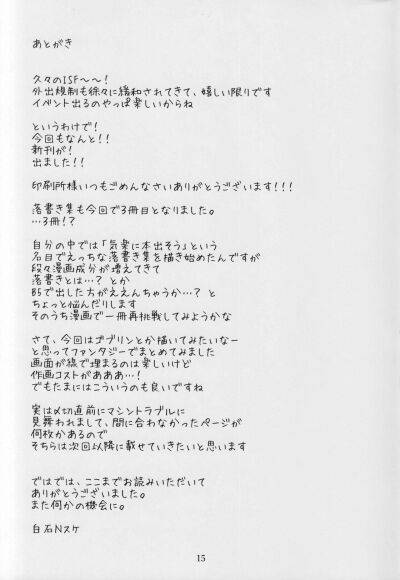 あとがき
久々のISF〜〜！
外出規制も徐々に緩和されてきて、嬉しい限りです
イベント出るのやっぱ楽しいからね
というわけで！
今回もなんと！！
新刊が！
出ました！！
印刷所様いつもごめんなさいありがとうございます！！！
落書き集も今回で3冊目となりました。
…3冊！？
自分の中では「気楽に本出そう」という
名目でえっちな落書き集を描き始めたんですが
段々漫画成分が増えてきて
落書きとは…？ とか
B5で出した方がええんちゃうか…？ と
ちょっと悩んだりします
そのうち漫画で一冊再挑戦してみようかな
さて、今回はゴブリンとか描いてみたいなー
と思ってファンタジーでまとめてみました
画面が線で埋まるのは楽しいけど
作画コストがあああ…！
でもたまにはこういうのも良いですね
実は〆切直前にマシントラブルに
見舞われまして、間に合わなかったページが
何枚かあるので
そちらは次回以降に載せていきたいと思います
ではでは、ここまでお読みいただいて
ありがとうございました。
また何かの機会に。
白石Nスケ
15